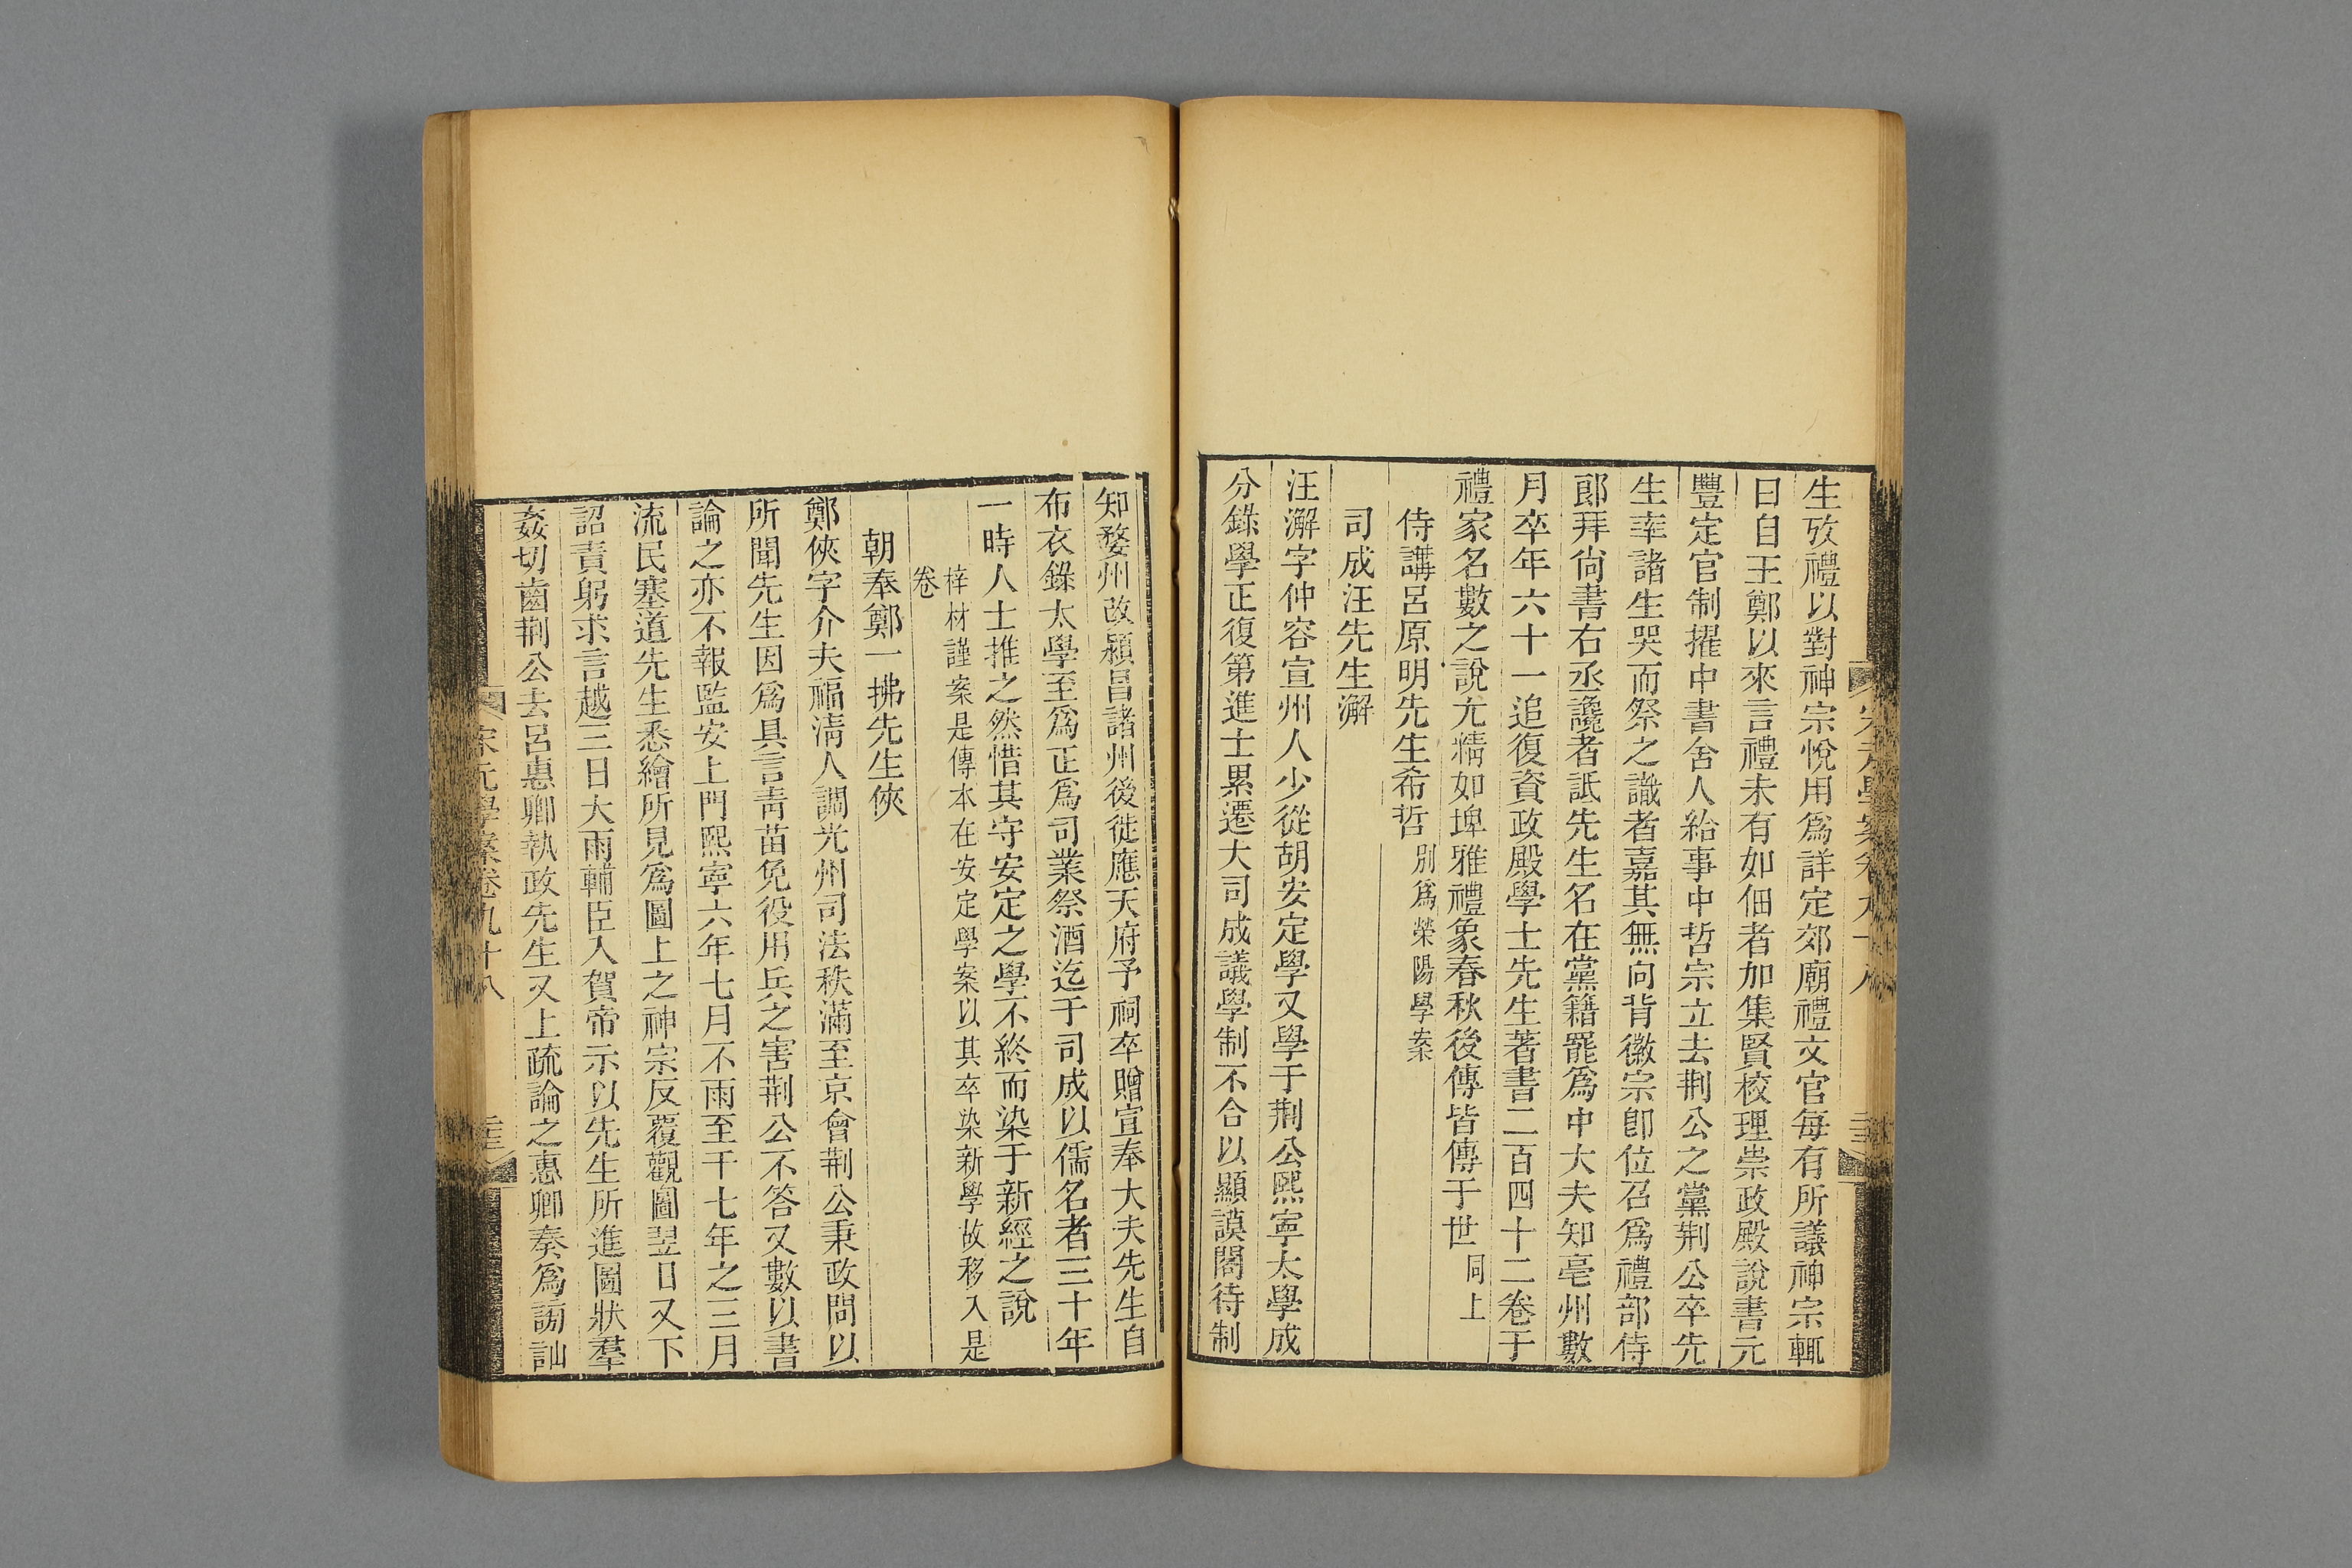 生攷禮以對神宗悅用爲詳定郊廟禮文官每有所議神宗輒
曰自王鄭以來言禮未有如佃者加集賢校理崇政殿說書元
豐定官制擢中書舍人給事中哲宗立去荆公之黨荆公卒先
生率諸生哭而祭之識者嘉其無向背徽宗卽位召爲禮部侍
郎拜尙書右丞讒者詆先生名在黨籍罷爲中大夫知亳州數
月卒年六十一追復資政殿學士先生著書二百四十二卷于
禮家名數之說尤精如埤雅禮象春秋後傳皆傳于世同上
侍講呂原明先生希哲別爲滎陽學案
司成汪先生澥
汪澥字仲容宣州人少從胡安定學又學于荆公熙寧太學成
分錄學正復第進士累遷大司成議學制不合以顯謨閣待制
知婺州改潁昌諸州後徙應天府予祠卒贈宣奉大夫先生自
布衣錄太學至爲正爲司業祭酒迄于司成以儒名者三十年
一時人士推之然惜其守安定之學不終而染于新經之說
梓材謹案是傳本在安定學案以其卒染新學故移入是
卷
朝奉鄭一拂先生俠
鄭俠字介夫福淸人調光州司法秩滿至京會荆公秉政問以
所聞先生因爲具言靑苗免役用兵之害荆公不答又數以書
論之亦不報監安上門熙寧六年七月不雨至于七年之三月
流民塞道先生悉繪所見爲圖上之神宗反覆觀圖翌日又下
詔責躬求言越三日大雨輔臣入賀帝示以先生所進圖狀羣
姦切齒荆公去呂惠卿執政先生又上疏論之惠卿奏爲謗訕
宋元學案卷九十八